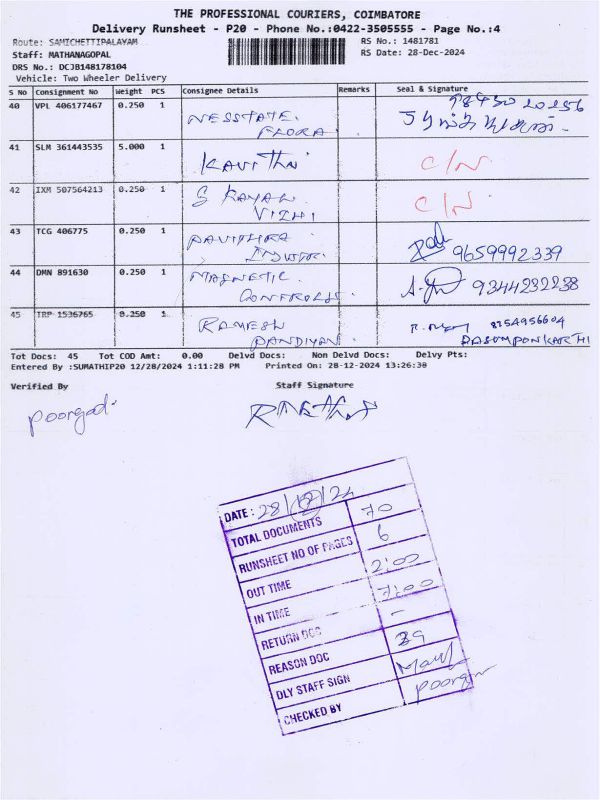 THE PROFESSIONAL COURIERS, COIMBATORE
Delivery Runsheet - P20 - Phone No.:0422-3505555 - Page No.:4
Route: SAMICHETTIPALAYAM
RS No.: 1481781
Staff: MATHANAGOPAL
RS Date: 28-Dec-2024
DRS No.: DCJB148178104
Vehicle: Two Wheeler Delivery
S No Consignment No Weight PCS Consignee Details Remarks Seal & Signature
40 VPL 406177467 0.250 1 NESSTATE.
FLORA
41 SLM 361443535 5.000 1 KAVITHA C/N
42 IXM 507564213 0.250 1 S KAYAL C/N
VIZHI
43 TCG 406775 0.250 1 PAVITHRA 9659992339
44 DMN 891630 0.250 1 MAGNETIC 9344232238
CONTROLS
45 TRP 1536765 0.250 1 RAMESH 8754956604
PANDIYAN RASUMPONKARTHI
Tot Docs: 45 Tot COD Amt: 0.00 Delvd Docs: Non Delvd Docs: Delvy Pts:
Entered By :SUMATHIP20 12/28/2024 1:11:28 PM Printed On: 28-12-2024 13:26:30
Verified By Staff Signature
DATE : 28/12/24
TOTAL DOCUMENTS 70
RUNSHEET NO OF PAGES 6
OUT TIME 2:00
IN TIME 7:00
RETURN DOC -
REASON DOC 39
DLY STAFF SIGN
CHECKED BY